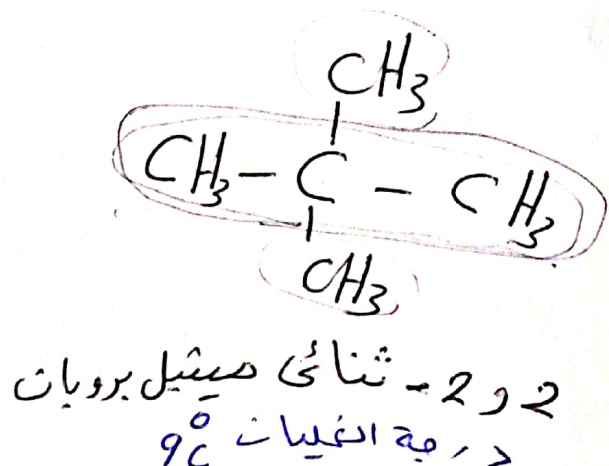 CH3
CH3 – C – CH3
CH3
2 و 2 - ثنائى ميثيل بروبان
درجة الغليان 9°C